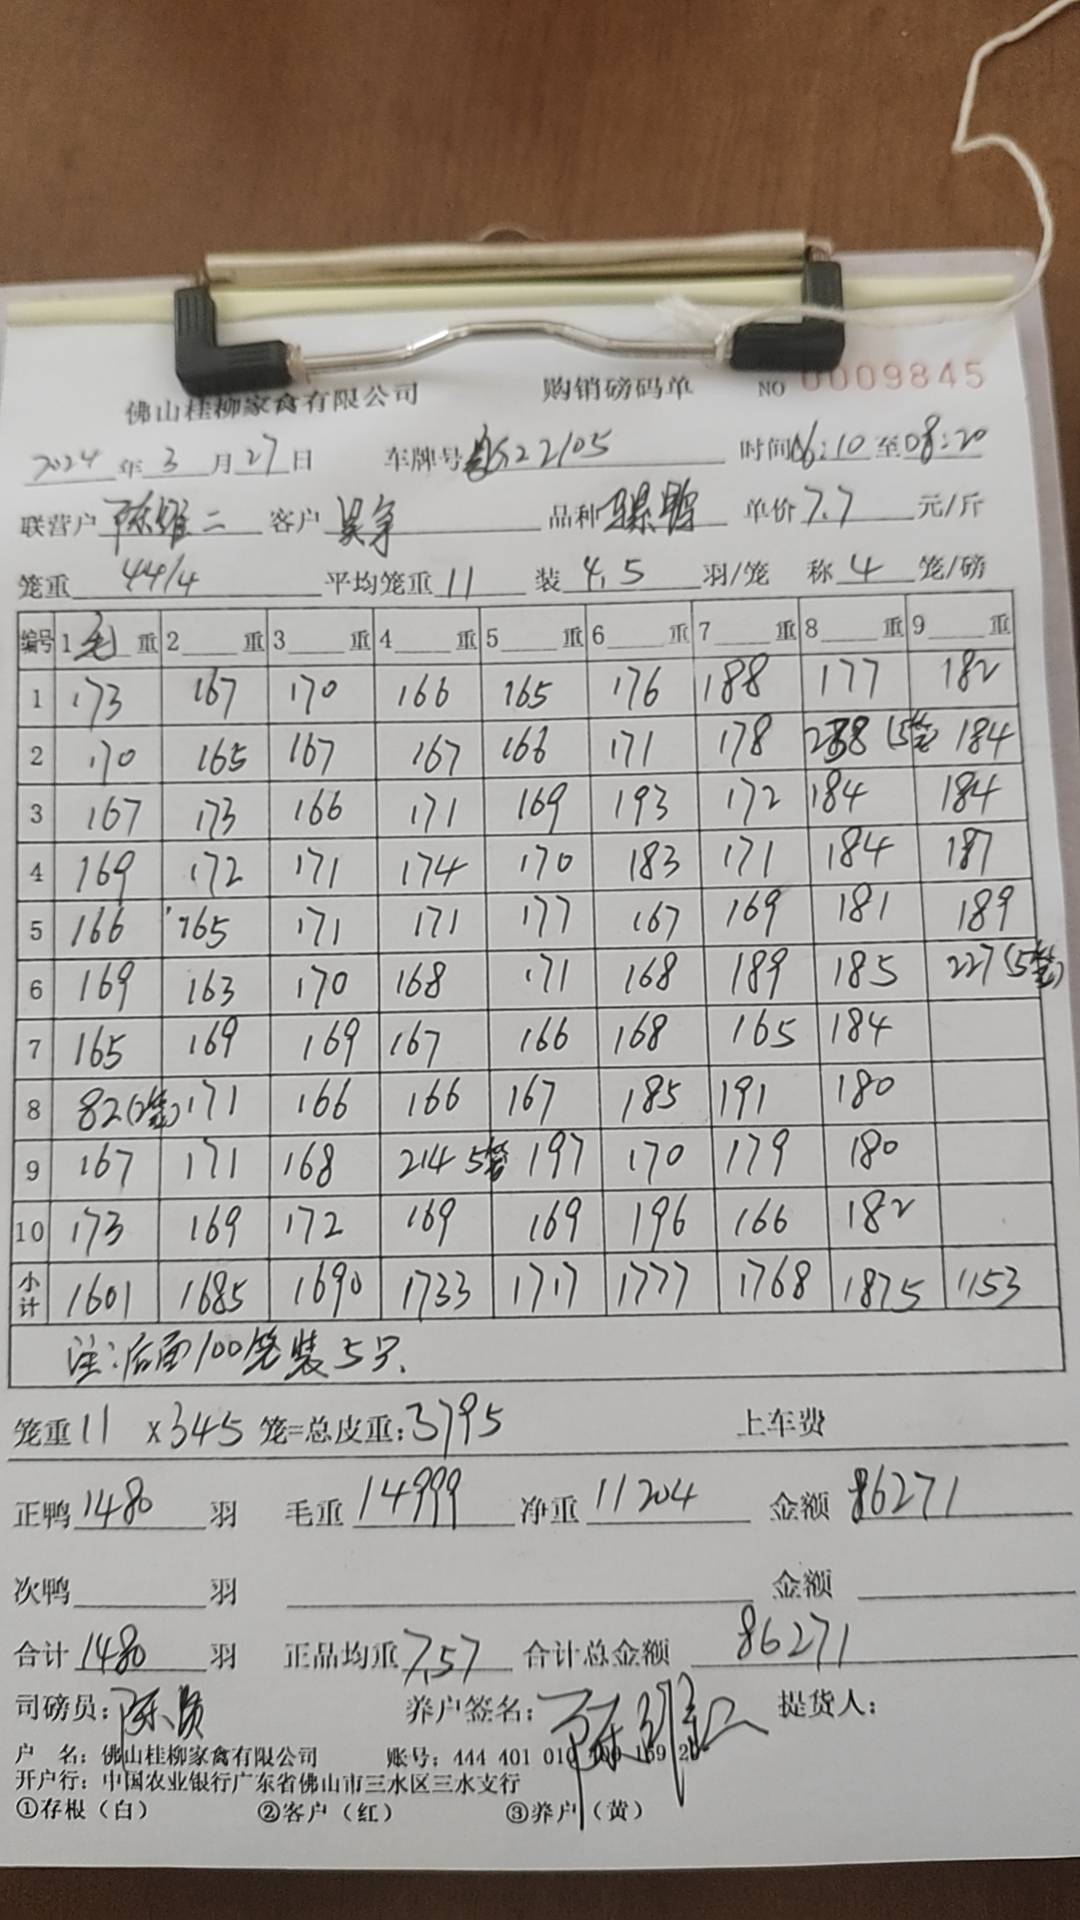 佛山桂柳家禽有限公司 购销磅码单 NO 0009845
2024年3月27日 车牌号 22105 时间06:10至08:20
联营户 陈维二 客户 吴争 品种 骡鸭 单价7.7元/斤
笼重44/4 平均笼重11 装4.5羽/笼 称4笼/磅
编号 1毛重 2重 3重 4重 5重 6重 7重 8重 9重
1 173 167 170 166 165 176 188 177 182
2 170 165 167 167 166 171 178 238(5笼 184
3 167 173 166 171 169 193 172 184 184
4 169 172 171 174 170 183 171 184 187
5 166 165 171 171 177 167 169 181 189
6 169 163 170 168 171 168 189 185 227(5笼)
7 165 169 169 167 166 168 165 184
8 82(2笼) 171 166 166 167 185 191 180
9 167 171 168 214 5笼 197 170 179 180
10 173 169 172 169 169 196 166 182
小计 1601 1685 1690 1733 1717 1777 1768 1875 1153
注:后面100笼装5只.
笼重11 x345笼=总皮重:3795 上车费
正鸭1480羽 毛重14999 净重11204 金额86271
次鸭 羽 金额
合计1480羽 正品均重7.57 合计总金额 86271
司磅员: 养户签名: 提货人:
户 名:佛山桂柳家禽有限公司 账号:444 401 010
开户行:中国农业银行广东省佛山市三水区三水支行
①存根(白) ②客户(红) ③养户(黄)